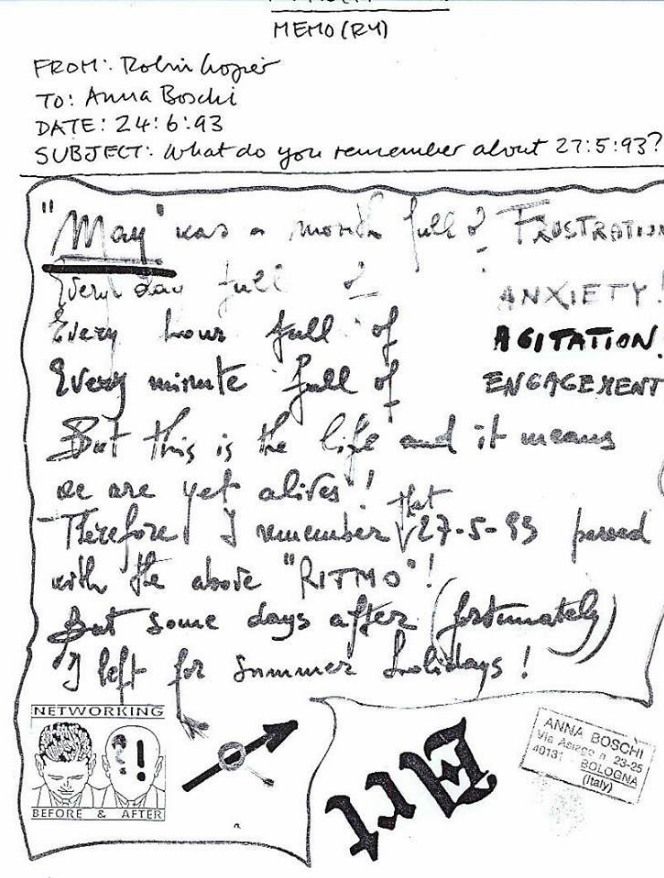 MEMO(RY)
FROM: Robin Crozier
TO: Anna Boschi
DATE: 24:6:93
SUBJECT: What do you remember about 27:5:93?
"May" was a month full of FRUSTRATION
Every day full of ANXIETY!
Every hour full of AGITATION
Every minute full of ENGAGEMENT
But this is the life and it means
we are yet alives!
Therefore I remember that 27-5-93 passed
with the above "RITMO"!
But some days after (fortunately)
I left for summer holidays!
NETWORKING
BEFORE & AFTER
Art
ANNA BOSCHI
Via n. 23-25
40131 - BOLOGNA
(Italy)